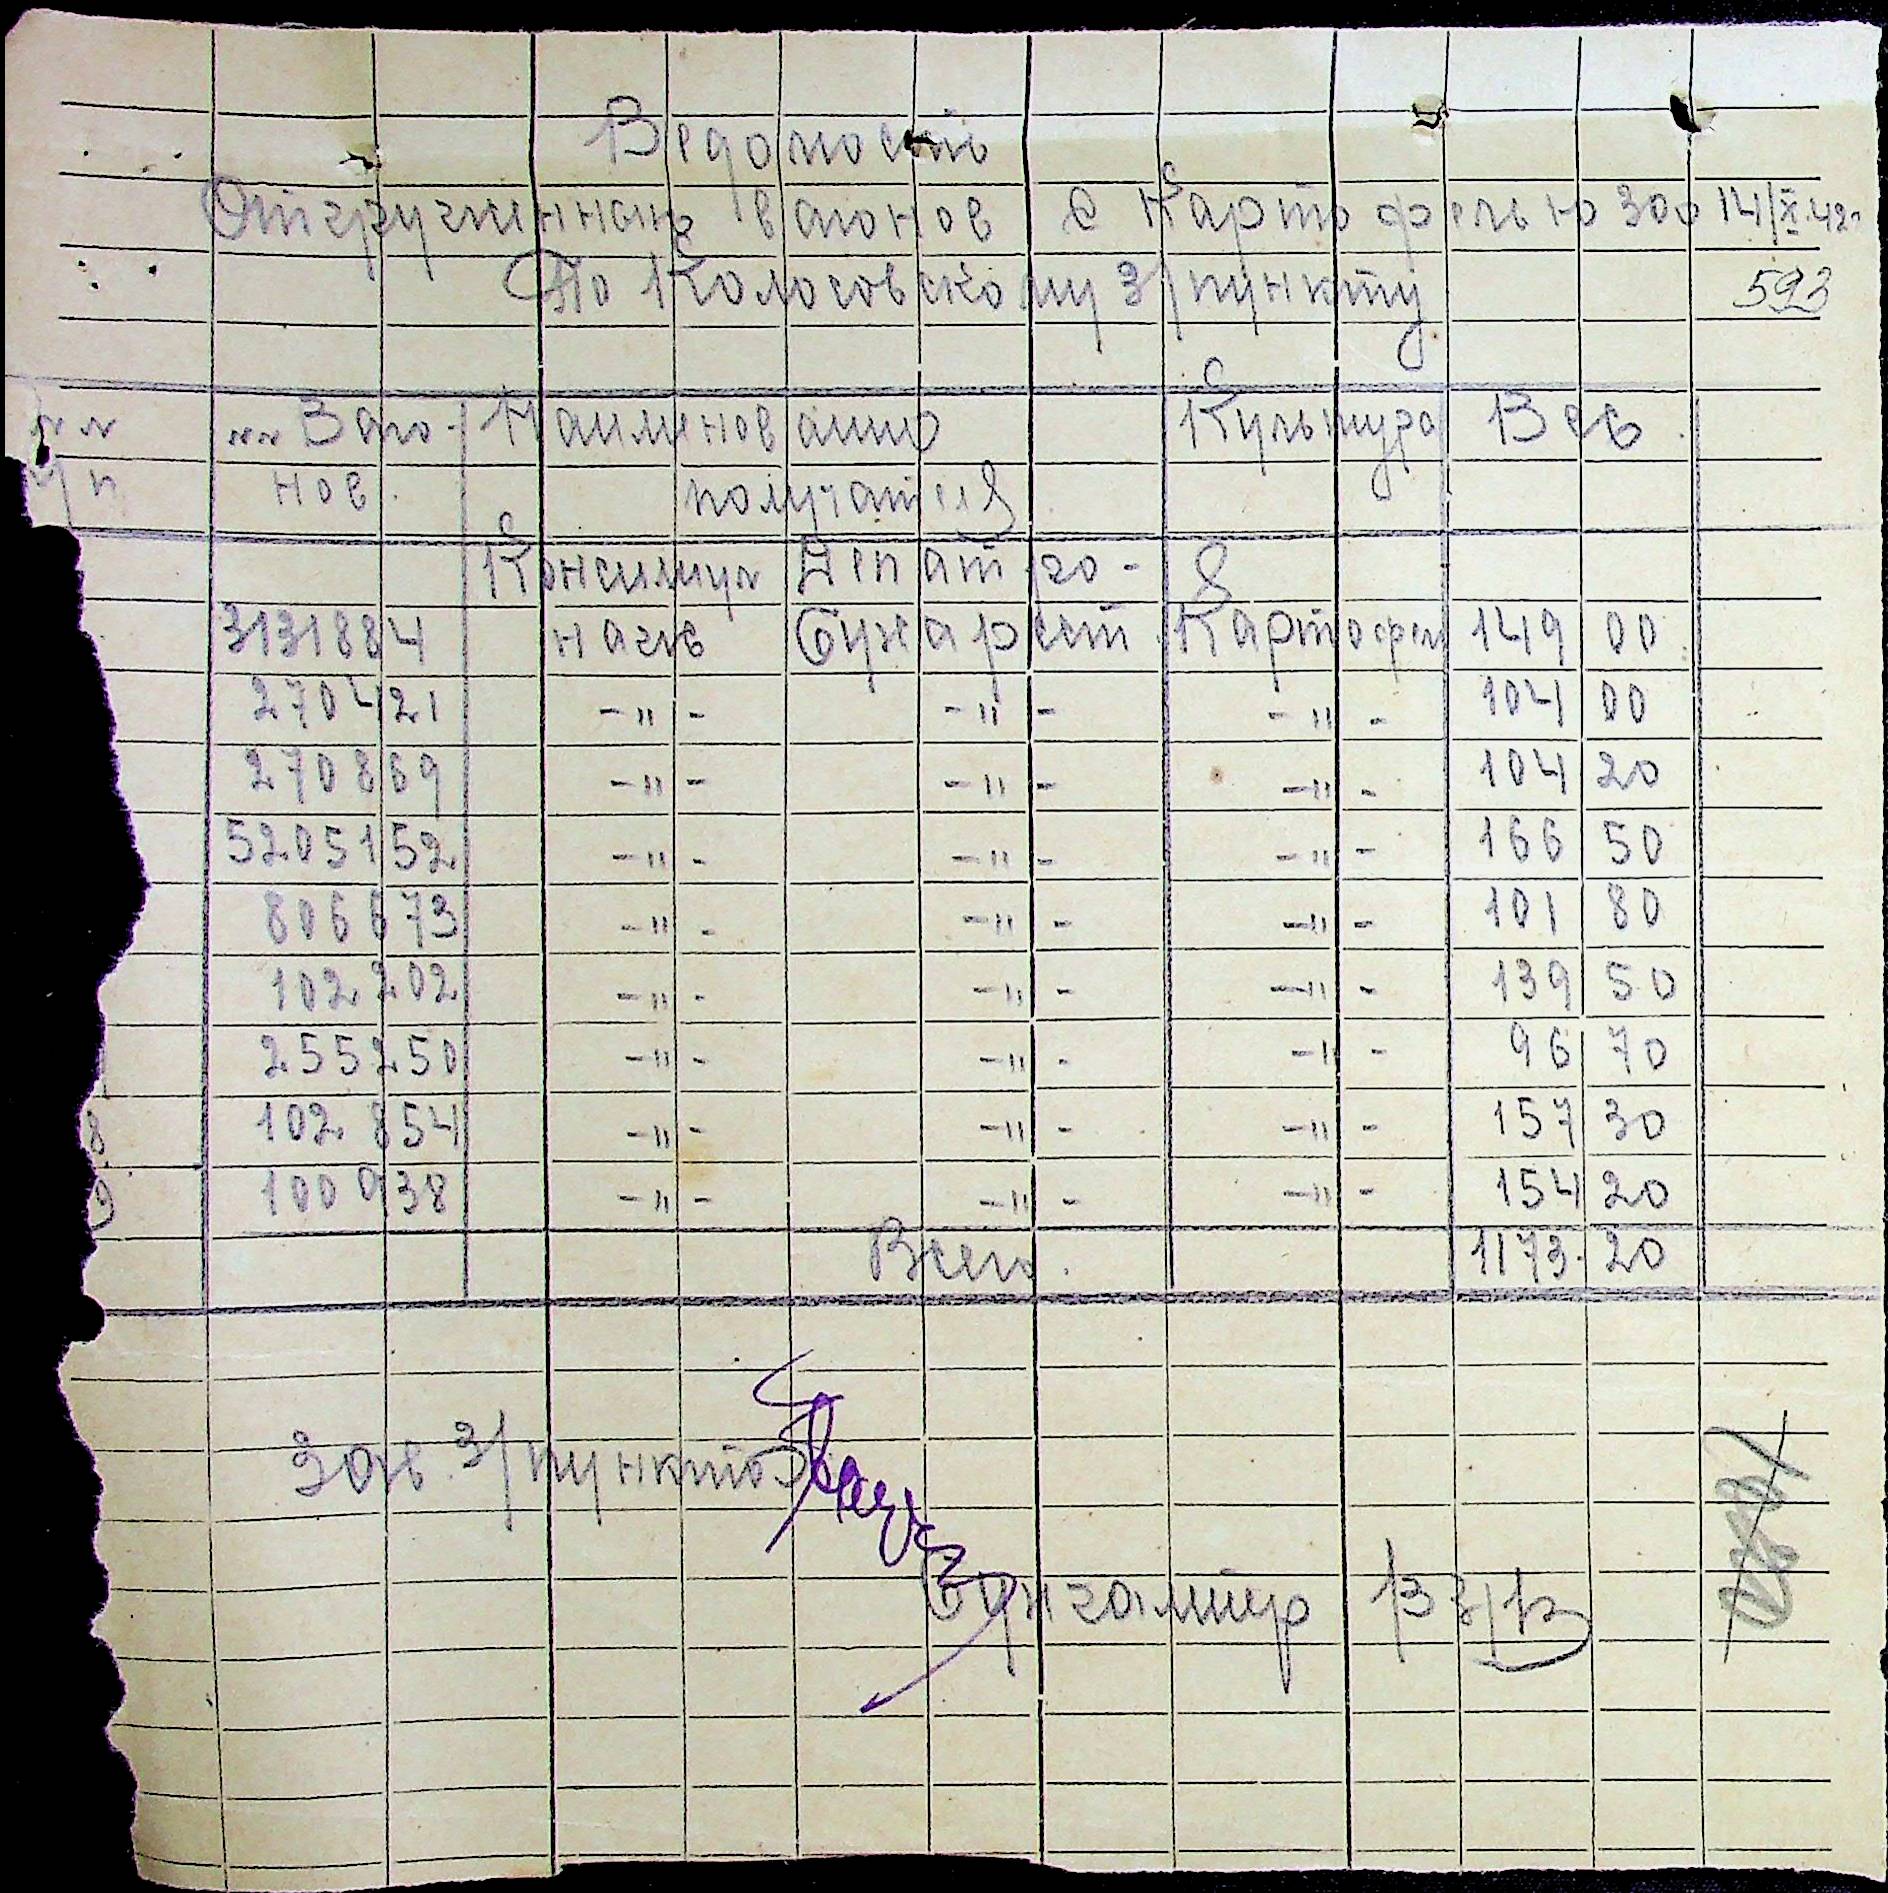 Ведомость
Отгруженных вагонов с картофелью за 14/X 42г
По Колосовскому з/пункту 593
№№ №№ Ваго- Наименование Культура Вес
п/п нов. получателя
Консилиул Депатро-
3131884 наль Бухарест Картофель 149 00
270421 -"- -"- -"- 104 00
270869 -"- -"- -"- 104 20
5205152 -"- -"- -"- 166 50
806673 -"- -"- -"- 101 80
102202 -"- -"- -"- 139 50
255250 -"- -"- -"- 96 70
8 102854 -"- -"- -"- 157 30
9 100938 -"- -"- -"- 154 20
Всего. 1173. 20
Зав. з/пункто
Бухгалтер